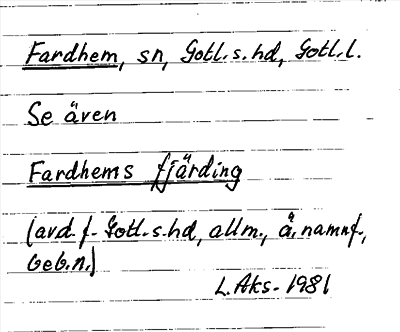 Fardhem, sn, Gotl. s. hd, Gotl. l.
Se även
Fardhems fjärding
(avd. f. Gotl. s. hd, allm., ä. namnf.,
beb.n.)
L. Aks. 1981